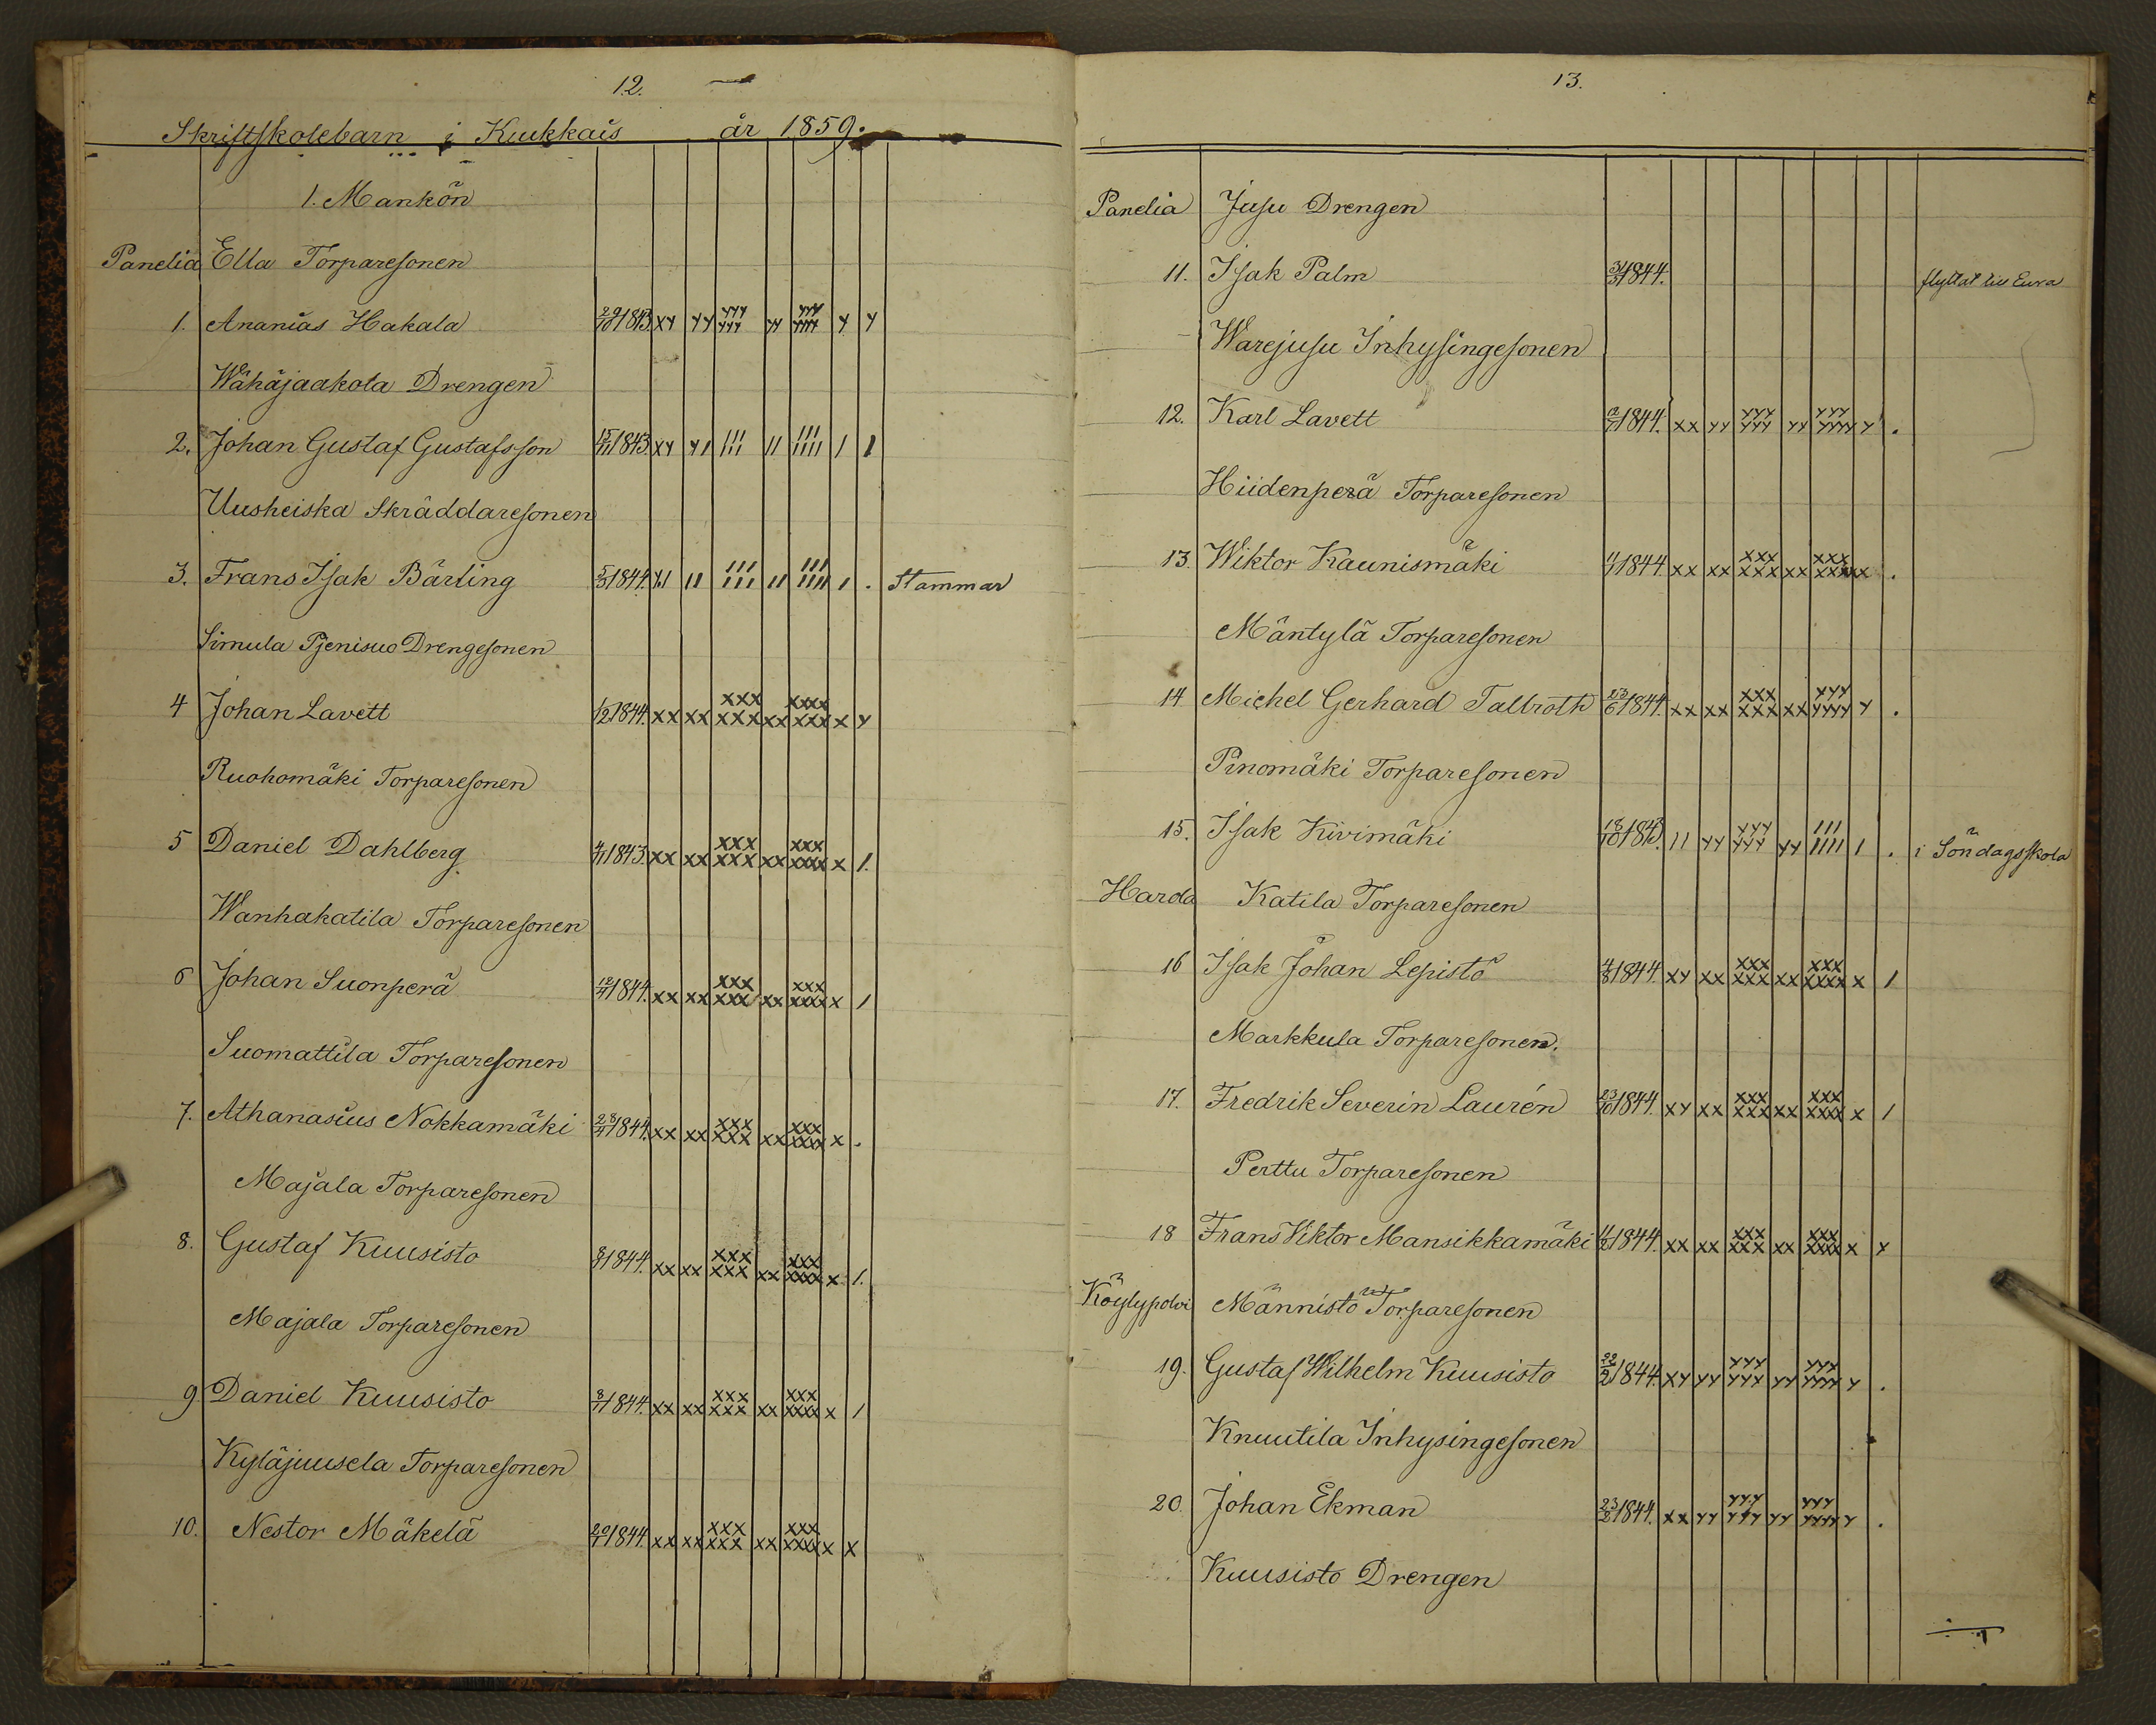 12.
Skriftskolebarn i Kuukkais år 1859.
1. Mankön
Panelia Ella Torparesonen
1. Ananias Hakala 29/10 1843. xy yy yyy yyy yy yyy yyyy y y
Wähäjaakola Drengen
2. Johan Gustaf Gustafsson 15/11 1843. xy yı ııı ııı ıı ııı ıııı ı ı
Uusheiska Skräddaresonen
3. Frans Isak Bärling 5/3 1844. yı ıı ııı ııı ıı ııı ıııı ı . Stammar
Simula Drengesonen
4 Johan Lavett 1/2 1844. xx xx xxx xxx xx xxxx xxx x y
Ruohomäki Torparesonen
5 Daniel Dahlberg 4/11 1843. xx xx xxx xxx xx xxx xxxx x 1.
Wanhakatila Torparesonen
6 Johan Suonperä 1844. xx xx xxx xxx xx xxx xxxx x 1
Suomattila Torparesonen
7. Athanasius Nokkamäki 1844. xx xx xxx xxx xx xxx xxxx x .
Majala Torparesonen
8. Gustaf Kuusisto 1844. xx xx xxx xxx xx xxx xxxx x 1.
Majala Torparesonen
9 Daniel Kuusisto 1844. xx xx xxx xxx xx xxx xxxx x 1
Kyläjuusela Torparesonen
10. Nestor Mäkelä 1844. xx xx xxx xxx xx xxx xxxx x x
13.
Panelia Jusu Drengen
11. Isak Palm 31/3 1844. flyttat till Eura
Warejusu Inhysingesonen
12. Karl Lavett 1844. xx yy yyy yyy yy yyy yyyy y .
Hiidenperä Torparesonen
13. Wiktor Kaunismäki 1844. xx xx xxx xxx xx xxx xxxx x .
Mäntylä Torparesonen
14 Michel Gerhard Tallroth 23/6 1844. xx xx xxx xxx xx xyy yyyy y .
Pinomäki Torparesonen
15. Isak Kivimäki 18/10 1843. ıı yy yyy yyy yy ııı ıııı ı . i Söndagsskola
Harola Katila Torparesonen
16 Isak Johan Lepistö 4/8 1844. xy xx xxx xxx xx xxx xxxx x 1
Markkula Torparesonen.
17. Fredrik Severin Laurén 23/10 1844. xy xx xxx xxx xx xxx xxxx x 1
Perttu Torparesonen
18 Frans Viktor Mansikkamäki 11/2 1844. xx xx xxx xxx xx xxx xxxx x x
Köylypolvi Männistö Torparesonen
19. Gustaf Wilhelm Kuusisto 22/2 1844. xy yy yyy yyy yy yyy yyyy y .
Knuutila Inhysingesonen
20. Johan Ekman 23/8 1844. xx yy yyy yyy yy yyy yyyy y .
Kuusisto Drengen